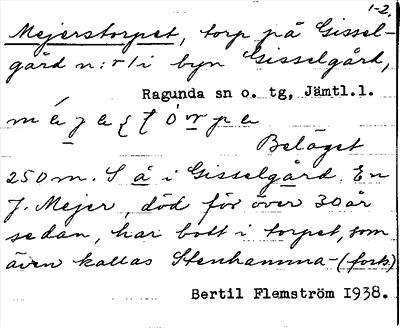 1-2.
Mejerstorpet, torp på Gissel-
gård n:r 1 i byn Gisselgård,
Ragunda sn o. tg, Jämtl.l.
Beläget
250 m. S å i Gisselgård. En
J. Mejer, död för över 30 år
sedan, har bott i torpet, som
även kallas Stenhamma- (forts)
Bertil Flemström 1938.